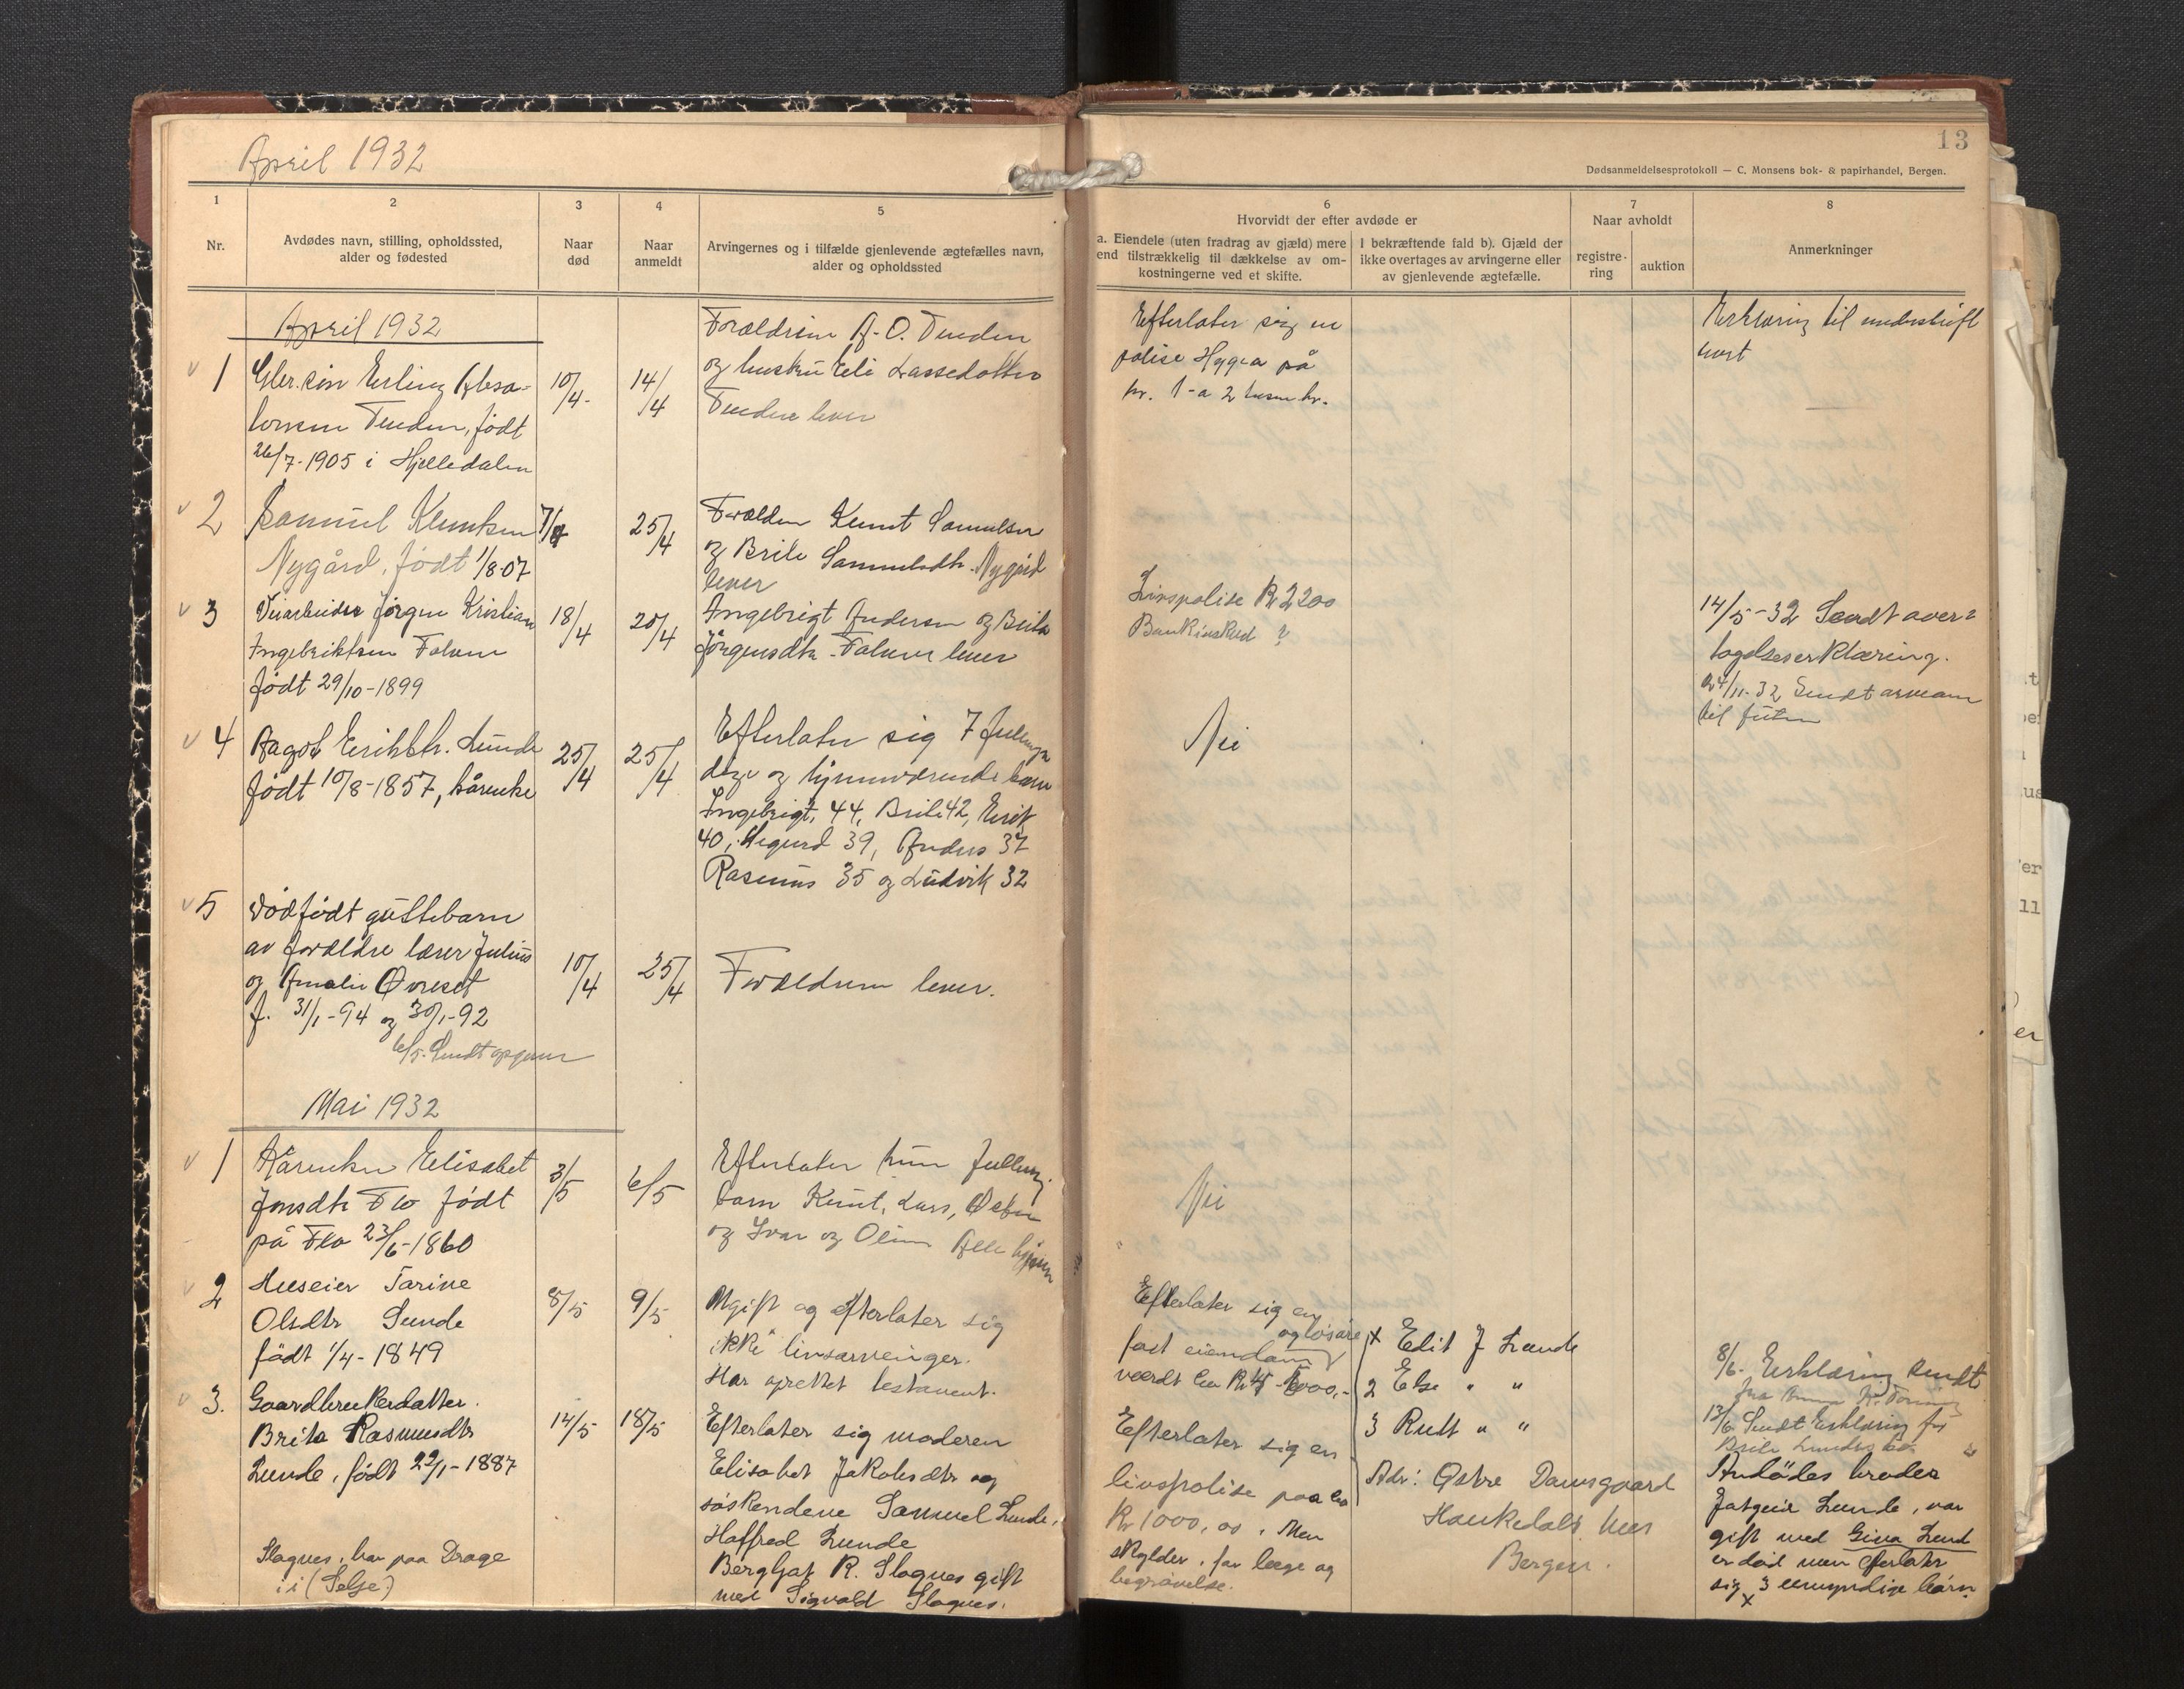 April 1932
13
Dødsanmeldelsesprotokoll — C. Monsens bok- & papirhandel, Bergen.
1
Nr.
2
Avdødes navn, stilling, opholdssted,
alder og fødested
3
Naar
død
4
Naar
anmeldt
5
Arvingernes og i tilfælde gjenlevende ægtefælles navn,
alder og opholdssted
6
Hvorvidt der efter avdøde er
a. Eiendele (uten fradrag av gjæld) mere
end tilstrækkelig til dækkelse av om-
kostningerne ved et skifte.
I bekræftende fald b). Gjæld der
ikke overtages av arvingerne eller
av gjenlevende ægtefælle.
7
Naar avholdt
registre-
ring
auktion
8
Anmerkninger
April 1932
1
sön Erling Absa-
lonsen Tenden, født
26/7-1905 i Hjelledalen
10/4-
14/4
Forældrene A. O. Tenden
og hustru Eli Lassedotter
Tenden lever
Efterlater sig en
polise Hygea på
kr. 1-a 2 tusen kr.
Erklæring til underskrift
sort
2
Samuel Knutsen
Nygård, født 1/8 07
7/4
25/4
Forælder Knut Samuelsen
og Brite Samuelsdtr. Nygård
lever
3
Veiarbeider Jørgen Kristian
Ingebriktsen Folven
født 29/10-1899
18/4
20/4
Ingebrigt Andersen og Brita
Jörgensdtr. Folven lever
Livspolise Kr 2200
Bankinskud ?
14/5-32 Sendt over=
tagelseserklæring.
24/11-32 Sendt
til futen
4
Ragot Erikdtr. Lunde
født 10/8-1857, kårenke
25/4
25/4
Efterlater sig 7 fullmyn
dige og hjemmværende barn
Ingebrigt, 44, Brite 42, Erik
40, Sigurd 39, Anders 37
Rasmus 35 og Ludvik 32
Nei
5
Dødfødt guttebarn
av forældre lærer Julius
og Amalie Øvreset
f. 31/1-94 og 30/1-92
6/5. Sendt
10/4
25/4
Forældrene lever.
Mai 1932
1
Kårenken Elisabet
Jonsdtr Flo født
på Flo 23/6-1860
3/5
6/5
Efterlater kun fullmyn
barn Knut, Lars,
og Ivar og Oline Alle hjemm
Nei
2
Huseier Tarine
Olsdtr Sunde
født 1/4-1849
8/5
9/5
Ugift og efterlater sig
ikke livsarveinger.
Har oprettet testament.
Efterlater sig en
og lösøre
fast eiendom
værdt ca Kr 4-5000,-
8/6- Erklæring sendt
3.
Gaardbrukerdatter.
Brita Rasmusdtr
Lunde, født 22/1-1887
14/5
18/5
Efterlater sig moderen
Elisabet Jakobsdtr og
söskendene Samuel Lunde,
Haffred Lunde
Bergljot R. Slagnes gift
med Sigvald Slagnes.
Slagnes, bor paa Drage
i (Selje)
Efterlater sig en
livspolise paa ca
Kr 1000,00. Men
skylder for læge og
begravelse.
x Edit J Lunde
2 Else " "
3 Rutt " "
Adr: Østre Damsgaard
Haukedals hus
Bergen.
13/6 Sendt Erklæring for
Brite Lundes bo
Avdödes broder
Jatgeir Lunde, var
gift med Gina Lund
er död men efterlater
sig 3 umyndige börn.
x